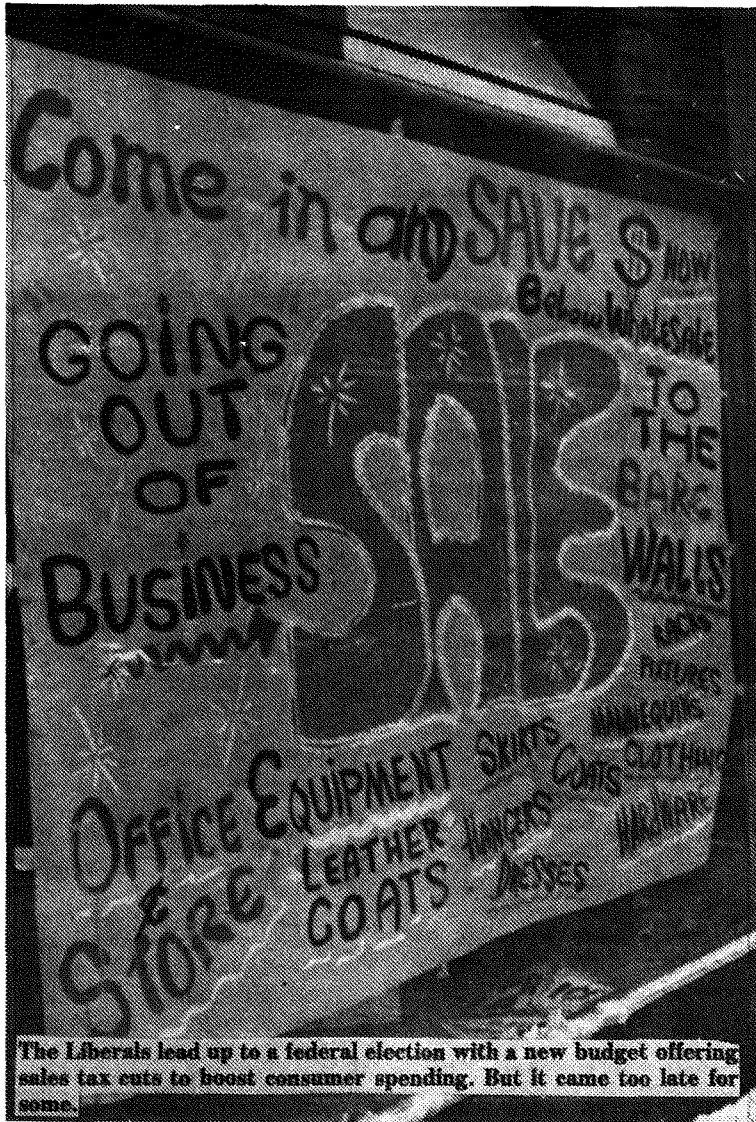 Come in and SAVE $ NOW
Below WholeSale
GOING
OUT
OF
BUSINESS
SALE
TO
THE
BARE
WALLS
RACKS
FIXTURES
MANNEQUINS
CLOTHING
HARDWARE
OFFICE EQUIPMENT
&
STORE
LEATHER
COATS
SKIRTS
COATS
HANGERS
DRESSES
The Liberals lead up to a federal election with a new budget offering
sales tax cuts to boost consumer spending. But it came too late for
some.